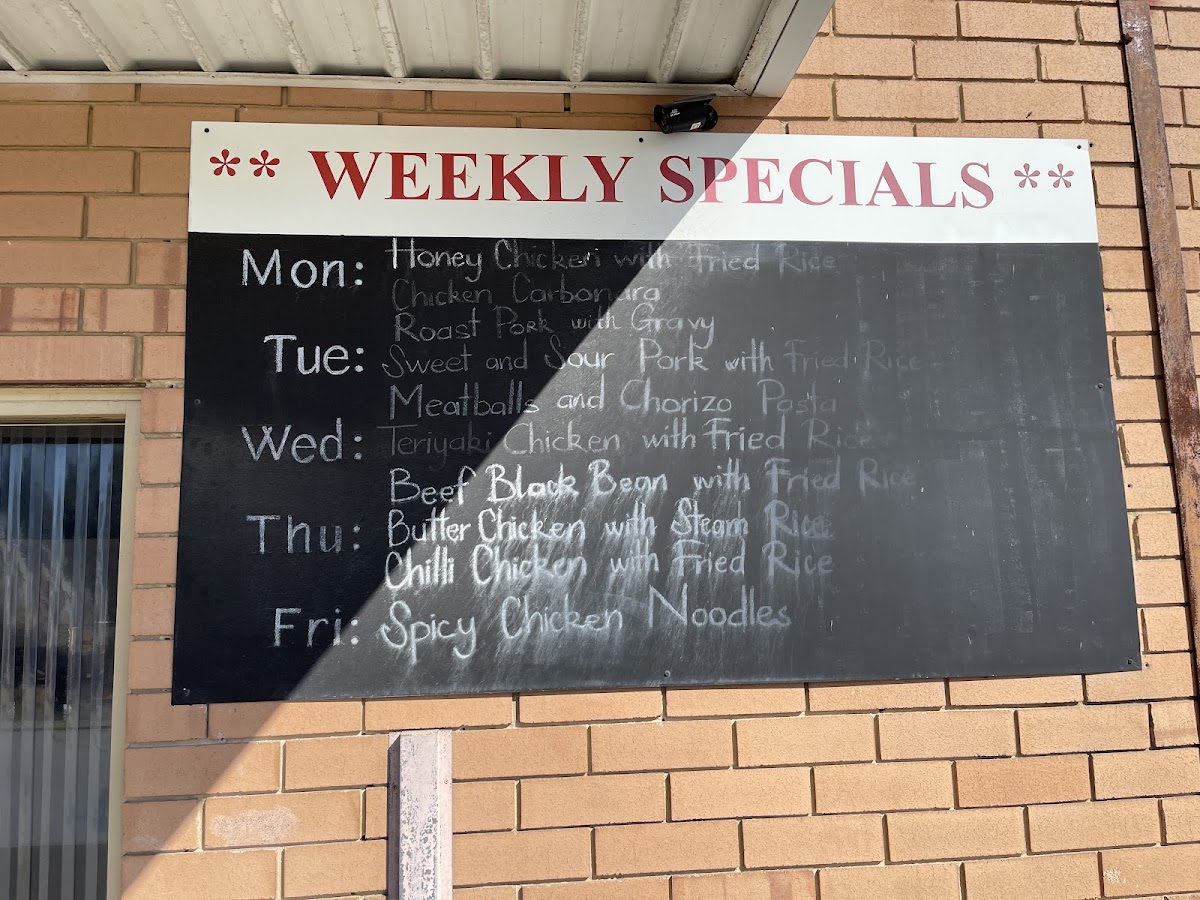 ** WEEKLY SPECIALS **
Mon: Honey Chicken with Fried Rice
Chicken Carbonara
Roast Pork with Gravy
Tue: Sweet and Sour Pork with Fried Rice
Meatballs and Chorizo Pasta
Wed: Teriyaki Chicken with Fried Rice
Beef Black Bean with Fried Rice
Thu: Butter Chicken with Steam Rice
Chilli Chicken with Fried Rice
Fri: Spicy Chicken Noodles